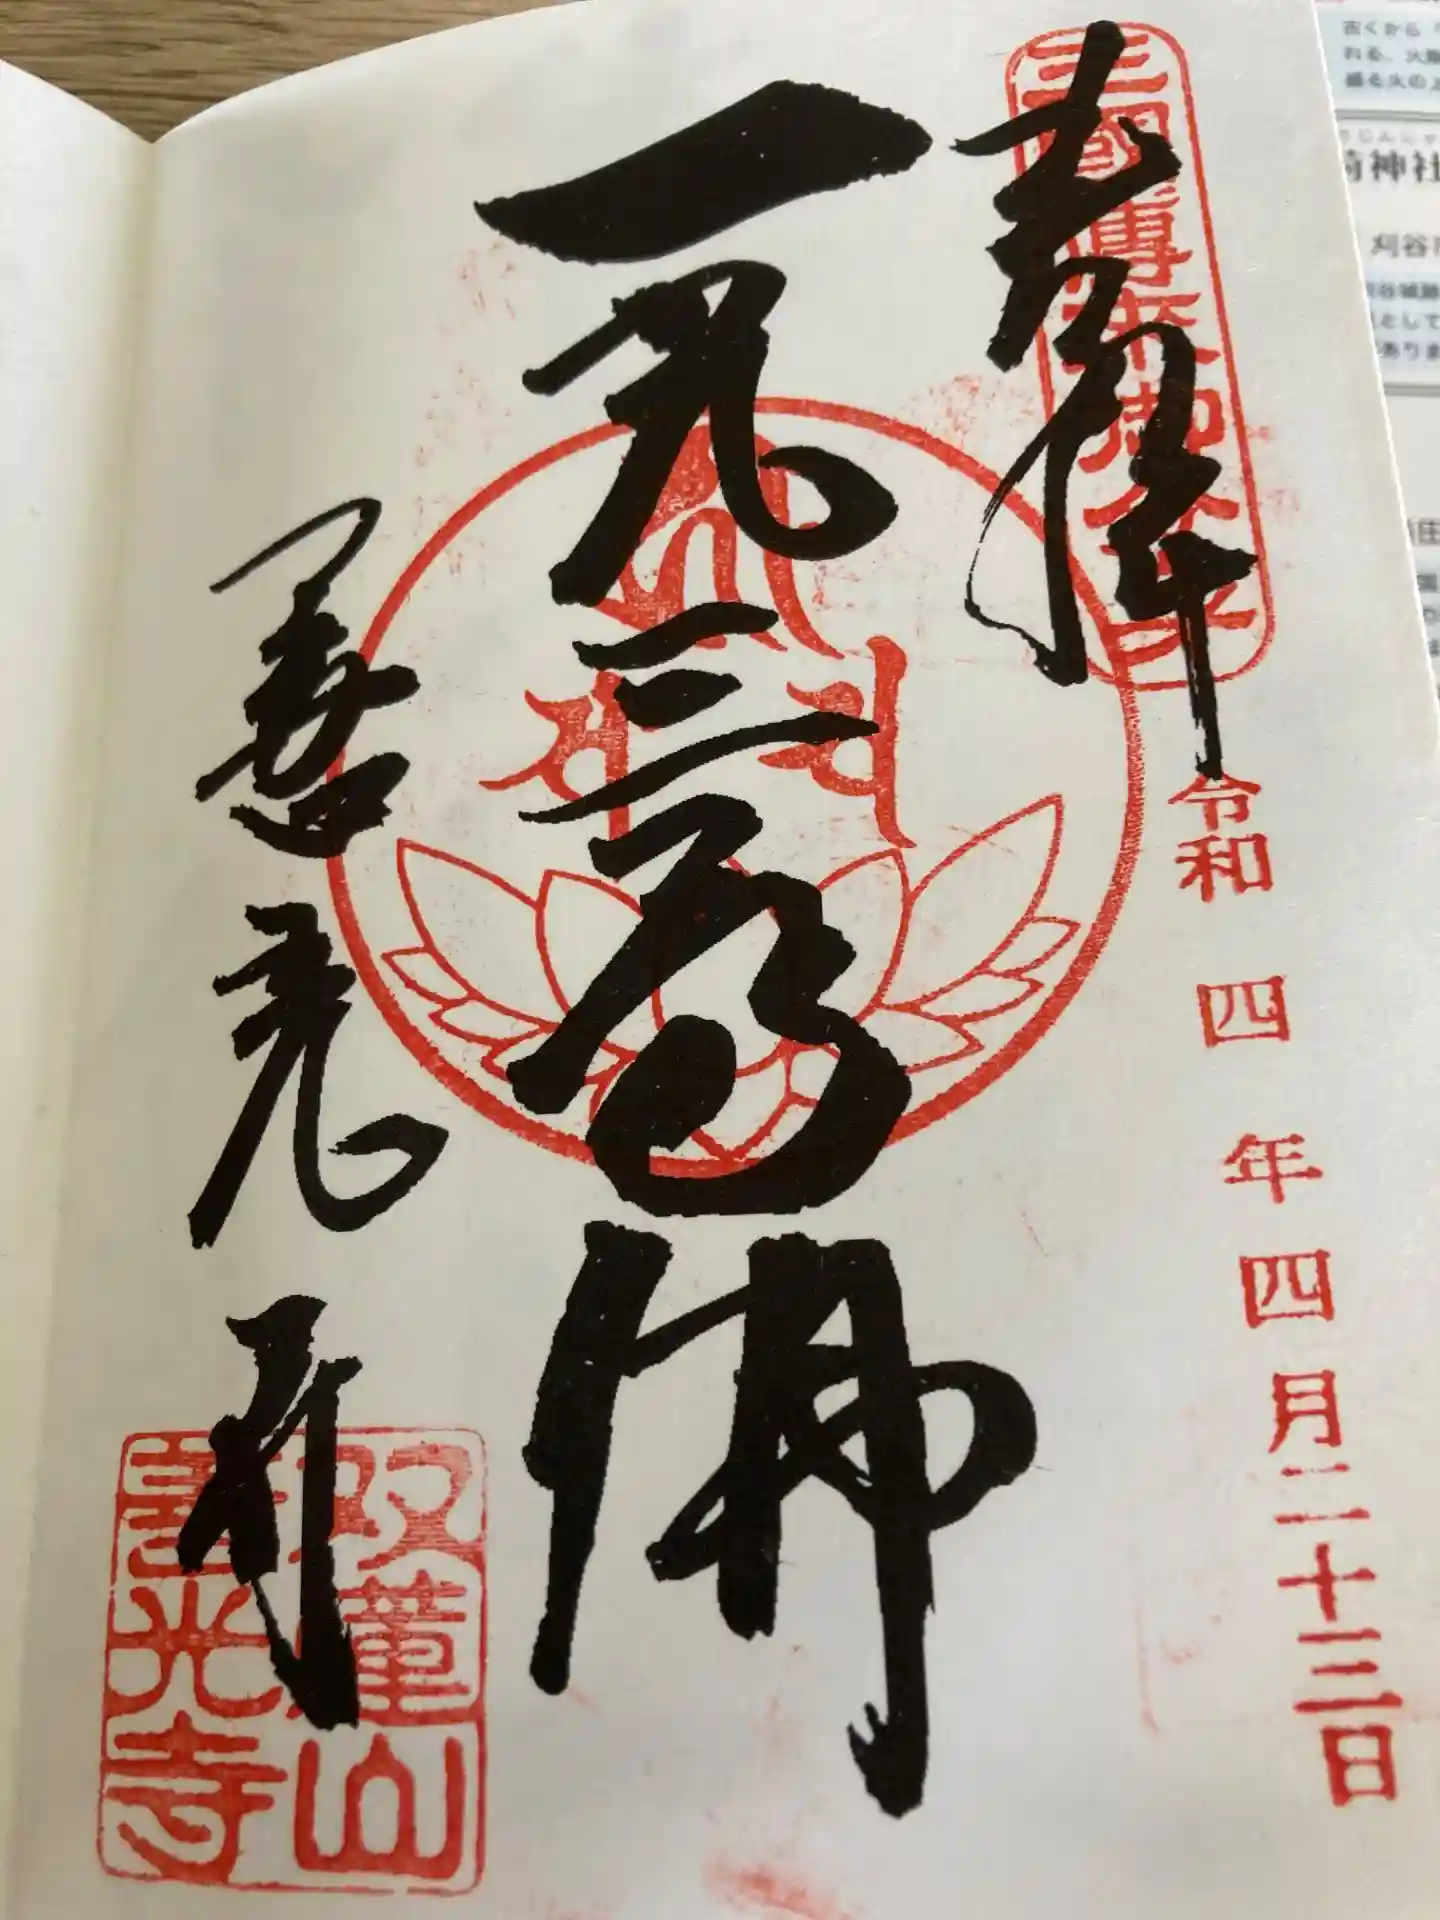 奉拝
三國傳来御分身
令和四年四月二十三日
一光三尊佛
善光寺
双蓮山
善光寺
古くから
れる、火難
盛る火の上
神社
刈谷市
谷城跡
として
がありま